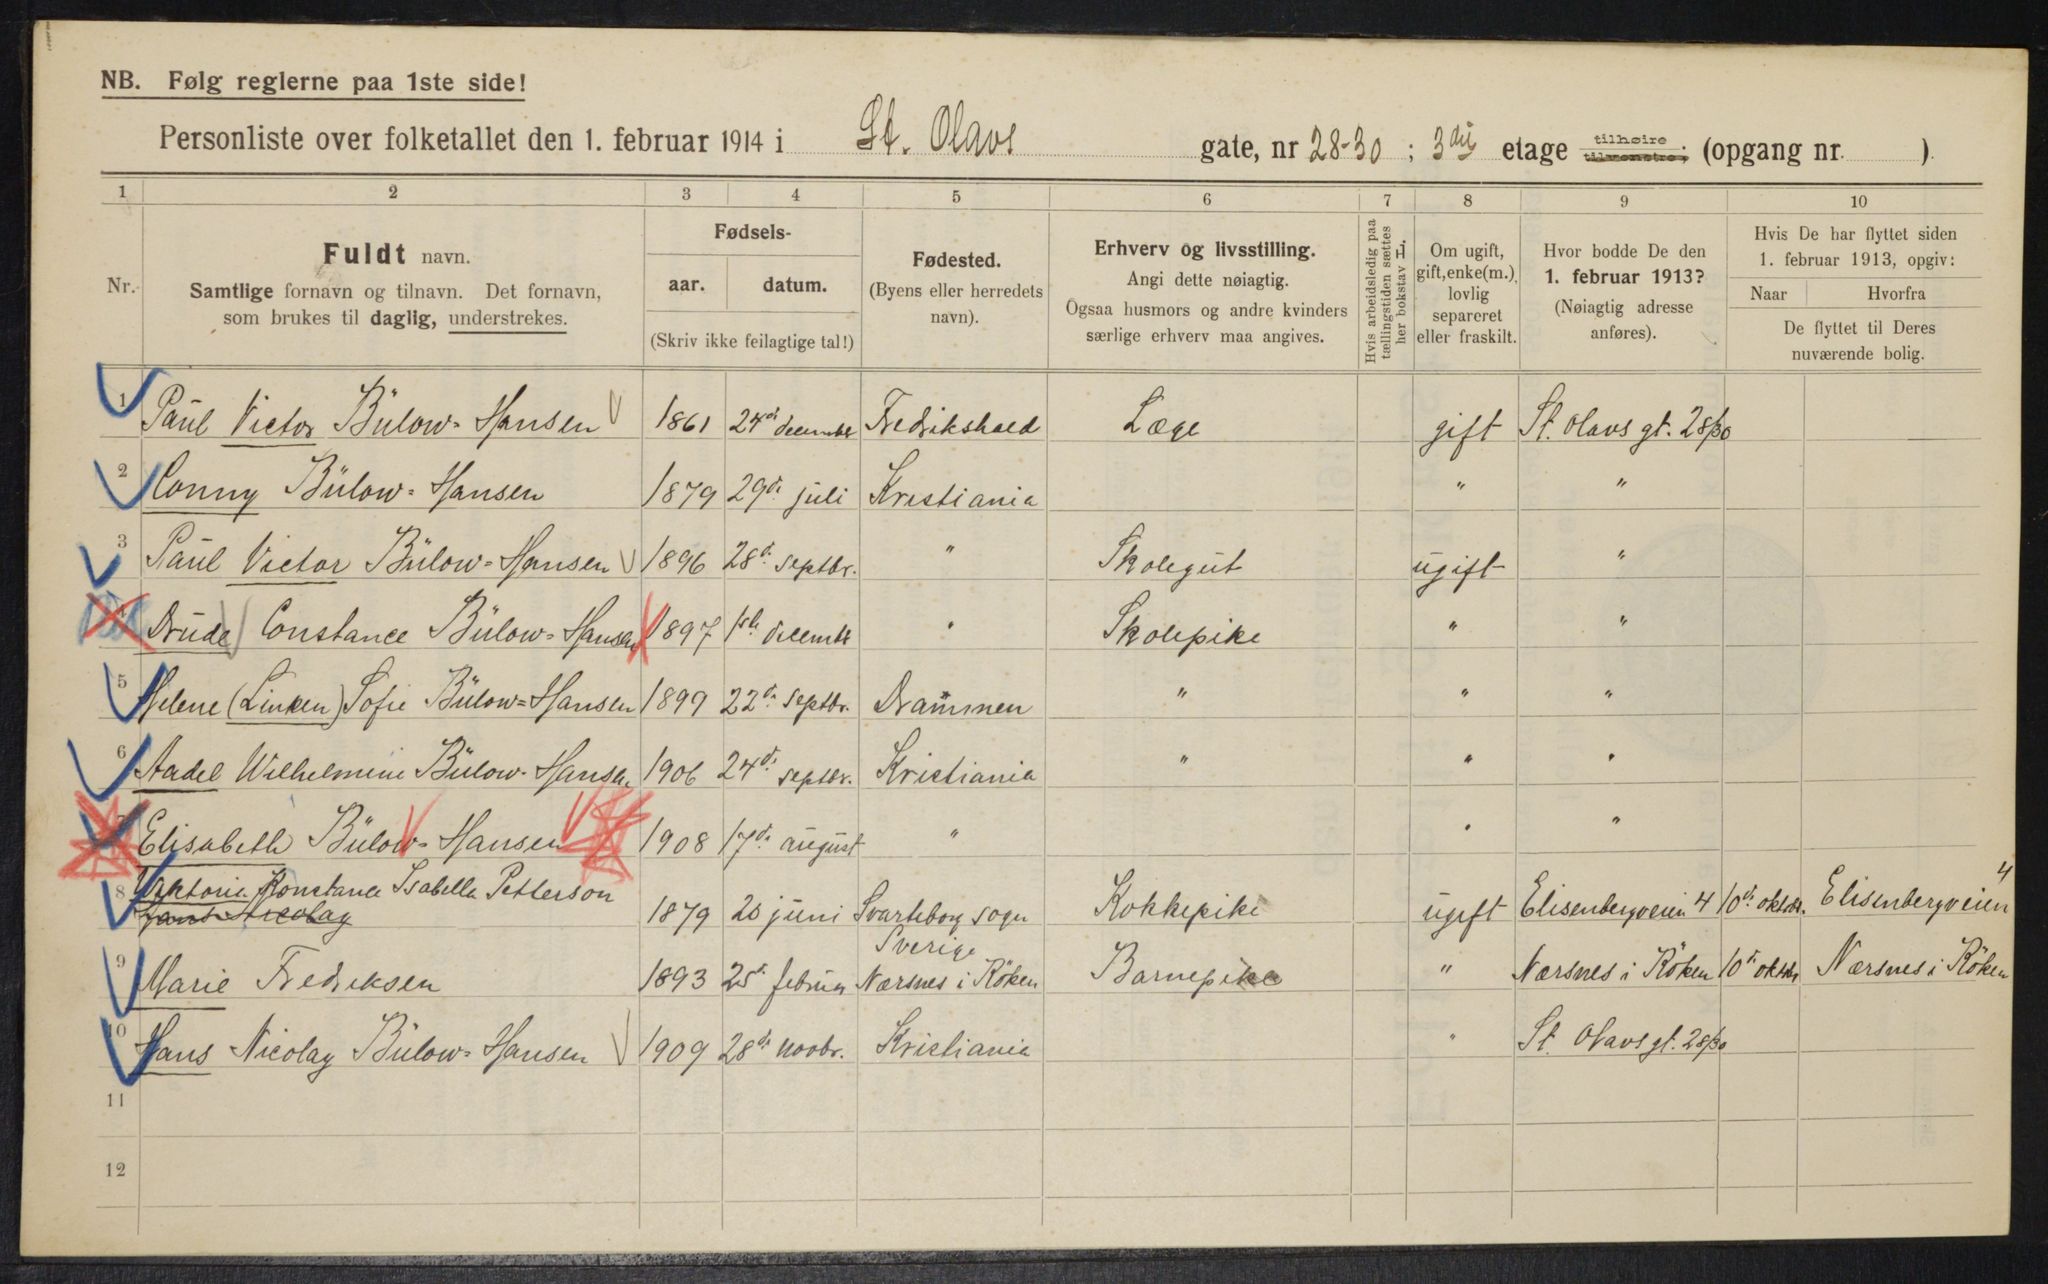 NB. Følg reglerne paa 1ste side!
Personliste over folketallet den 1. februar 1914 i St. Olavs gate, nr 28-30 ; 3die etage tilhøire. (opgang nr. )
1 2 3 4 5 6 7 8 9 10
Nr.
Fuldt navn.
Samtlige fornavn og tilnavn. Det fornavn,
som brukes til daglig, understrekes.
Fødsels-
aar. datum.
(Skriv ikke feilagtige tal!)
Fødested.
(Byens eller herredets
navn).
Erhverv og livsstilling.
Angi dette nøiagtig.
Ogsaa husmors og andre kvinders
særlige erhverv maa angives.
Hvis arbeidsledig paa
tællingstiden sættes
her bokstav L
Om ugift,
gift, enke(m.),
lovlig
separeret
eller fraskilt.
Hvor bodde De den
1. februar 1913?
(Nøiagtig adresse
anføres).
Hvis De har flyttet siden
1. februar 1913, opgiv:
Naar Hvorfra
De flyttet til Deres
nuværende bolig.
1 Paul Victor Bülow-Hansen 1861 24d december Fredrikshald Læge gift St. Olavs gt. 28/30
2 Conny Bülow-Hansen 1879 29d. juli Kristiania " "
3 Paul Victor Bülow-Hansen 1896 28d. septbr. " Skolegut ugift "
4 Drude Constance Bülow-Hansen 1897 1ste decembr " Skolepike " "
5 Helene (Linken) Sofie Bülow-Hansen 1899 22d. septbr. Drammen " " "
6 Aadel Wilhelmine Bülow-Hansen 1906 24d. septbr. Kristiania " " "
7 Elisabeth Bülow-Hansen 1908 17d. august " " "
8 Viktoria Konstance Isabella Petterson
Hans Nicolay
1879 26 juni Svarteborg sogn Kokkepike ugift Elisenbergveien 4 10d. oktobr. Elisenbergveien 4
Sverige
9 Marie Fredriksen 1893 25d. februar Nærsnes i Röken Barnepike " Nærsnes i Röken 10d oktobr Nærsnes i Röken
10 Hans Nicolay Bülow-Hansen 1909 28d. novbr. Kristiania " St. Olavs gt. 28/30
11
12